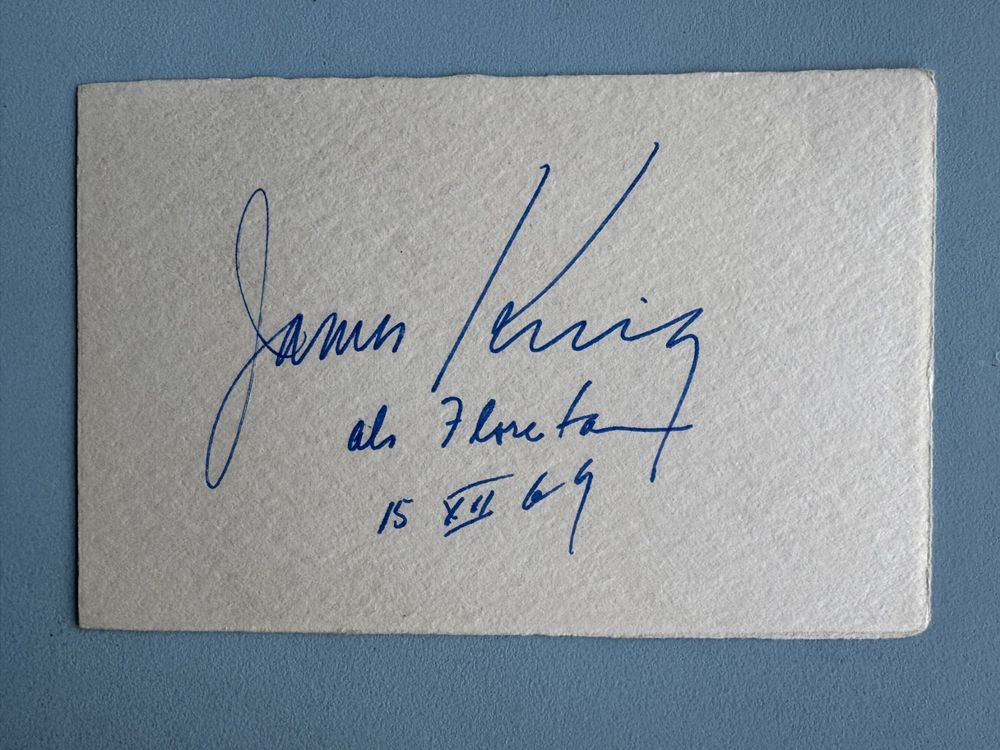 James King
als Florestan
15 XII 69